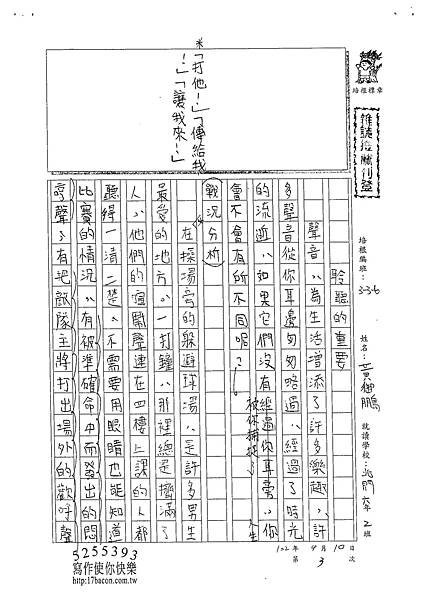 培根標章
雜誌推薦刊登
培根編班:336
姓名:黃御鵬
就讀學校:北門六年2班
102年9月10日
第3次
聆聽的重要
聲音,為生活增添了許多樂趣,許
多聲音從你耳邊匆匆略過,經過了時光
的流逝,如果它們沒有經過你耳旁,你
被你捕捉了
人生
會不會有所不同呢?
戰況分析
在操場旁的躲避球場,是許多男生
最愛的地方。一打鐘,那裡總是擠滿了
人,他們的喧鬧聲連在四樓上課的人都
聽得一清二楚。不需要用眼睛也能知道
比賽的情況,有被準確命中而發出的悶
哼聲,有把敵隊主將打出場外的歡呼聲
※「打他!」「傳給我
!」「讓我來!」
5255393
寫作使你快樂
http://17bacon.com.tw